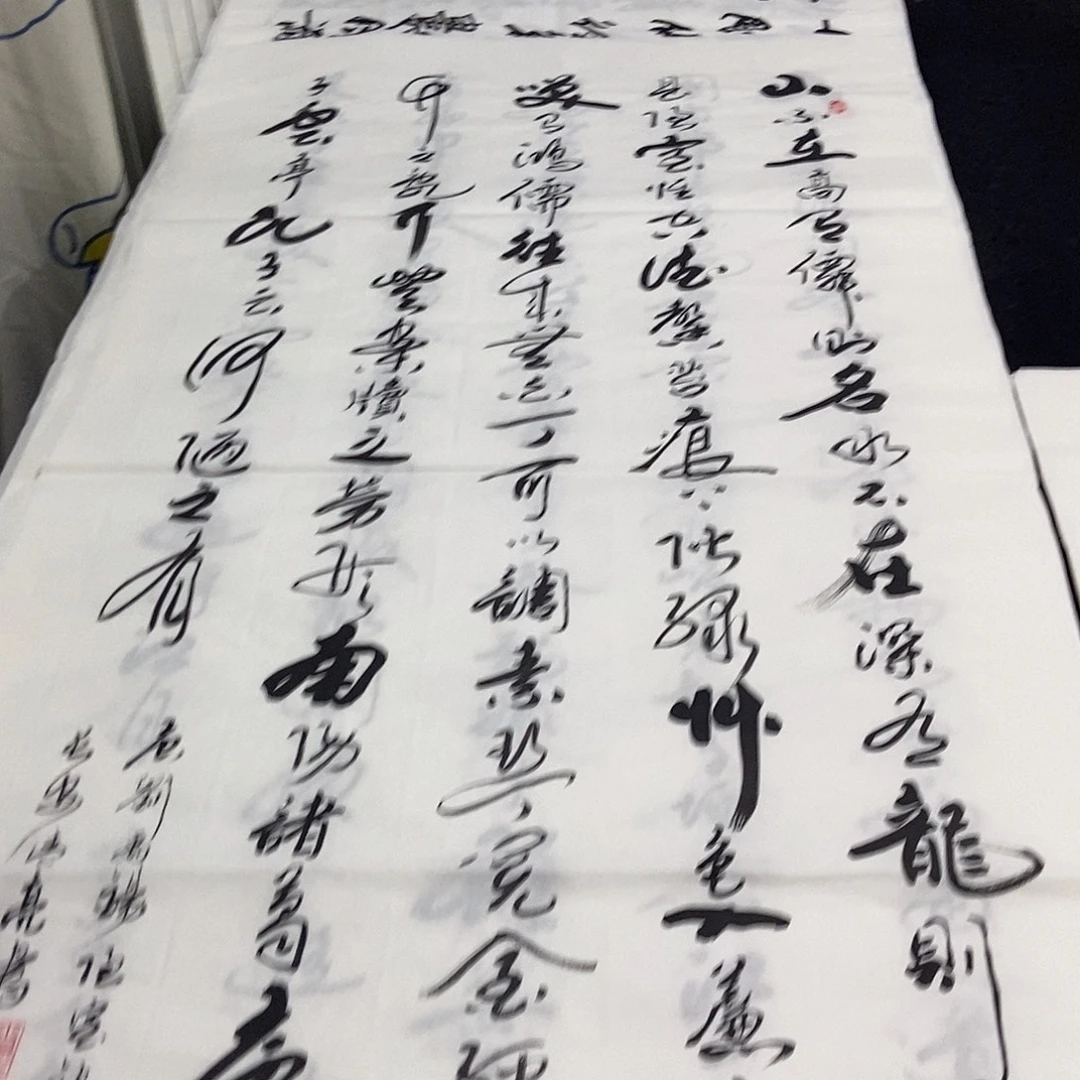 山不在高有僊則名水不在深有龍則
是陋室惟吾德馨苔痕上階綠艸色入簾
笑有鴻儒往來無白丁可以調素琴閱金經
竹之亂耳無案牘之勞形南陽諸葛廬
子雲亭孔子云何陋之有
右劉禹錫陋室
長安 亮書